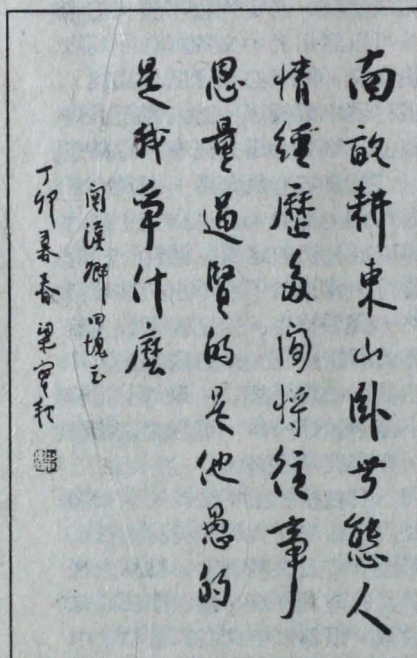 南畝耕東山卧世態人
情經歷多閒將往事
思量過賢的是他愚的
是我爭什麼
關漢卿 四塊玉
丁卯暮春 梁